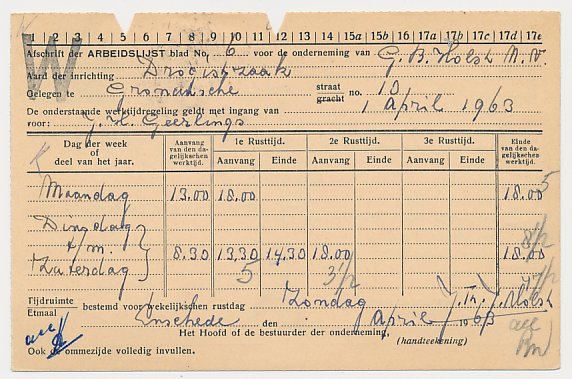 1 2 3 4 5 6 7 8 9 10 11 12 13 14 15a 15b 16a 16b 17a 17b 17c 17d 17e
Afschrift der ARBEIDSLIJST blad No. 6 voor de onderneming van G.B. Holst N.V.
Aard der inrichting Drogistzaak
Gelegen te Gronausche straat gracht no. 10
De onderstaande werktijdregeling geldt met ingang van 1 April 1963
voor: J.H. Geerlings
Dag der week of deel van het jaar. Aanvang van den dagelijkschen werktijd. 1e Rusttijd. 2e Rusttijd. 3e Rusttijd. Einde van den dagelijkschen werktijd.
Aanvang Einde Aanvang Einde Aanvang Einde
Maandag 13.00 18.00 18.00 5
Dinsdag 8½
t/m. 8.30 13.30 14.30 18.00 18.00
Zaterdag 5 3½ 47½
Tijdruimte Etmaal bestemd voor wekelijkschen rustdag Zondag
Enschede den April 1963 Holst
Het Hoofd of de bestuurder der onderneming,
(handteekening)
Ook de ommezijde volledig invullen.
W